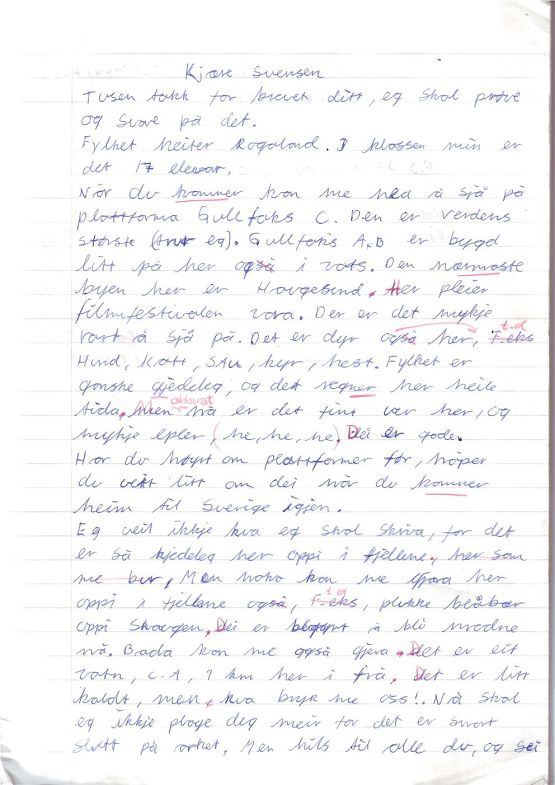 Kjære Svensen
Tusen takk for brevet ditt, eg skal prøve
og svare på det.
Fylket heiter Rogaland. I klassen min er
det 17 elevar.
Når du kommer kan me ned å sjå på
plattforma Gullfaks C. Den er verdens
største (trur eg). Gullfaks A,B er bygd
litt på her også i vats. Den nærmaste
byen her er Haugesund. Her pleier
filmfestivalen vara. Der er det mykje
rart å sjå på. Det er dyr også her, F.eks t.d
Hund, Katt, Sau, kyr, hest. Fylket er
ganske gjedeleg, og det regner her heile
tida. Men akkurat nå er det fint vær her, og
mykje epler, (he, he, he). Dei er gode.
Har du høyrt om plattformer før, håper
du veit litt om dei når du kommer
heim til Sverige igjen.
Eg veit ikkje kva eg skal skriva, for det
er så kjedeleg her oppi i fjellene, her som
me bur, Men noko kan me gjøra her
oppi i fjellene også, F.eks t.d, plukke blåbær
oppi skaugen, Dei er begynt å bli modne
nå. Bada kan me også gjera. Det er eit
vatn, C.A, 1 km her i frå. Det er litt
kaldt, men, kva bryr me oss!. Nå skal
eg ikkje plage deg meir for det er snart
slutt på arket, Men hils til alle du, og sei